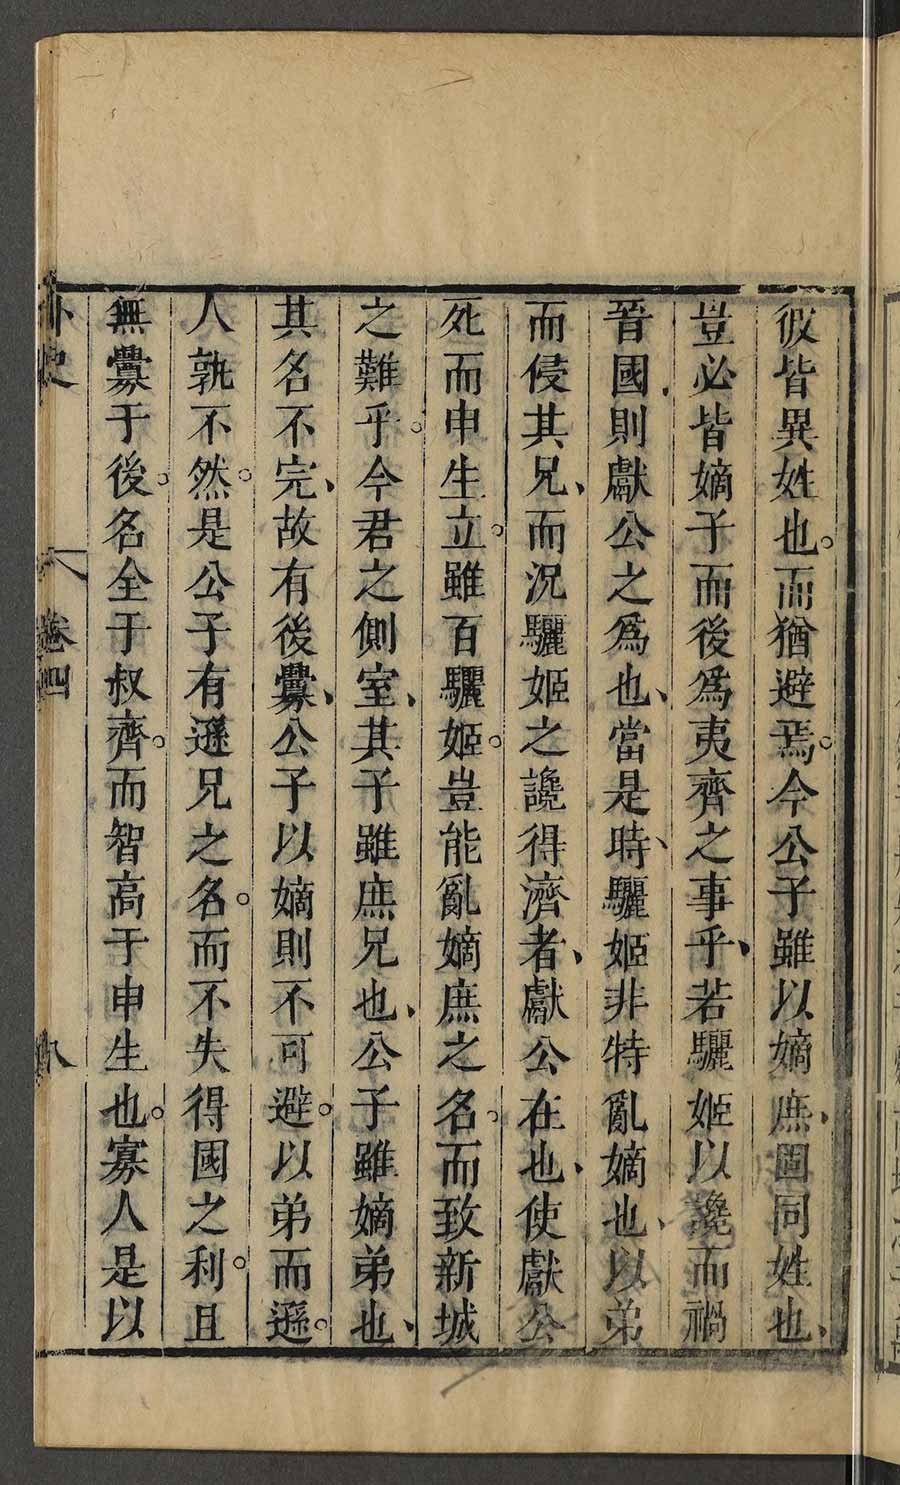 彼皆異姓也。而猶避焉。今公子雖以嫡庶、固同姓也、
豈必皆嫡子而後爲夷齊之事乎、若驪姬以讒而禍
晉國、則獻公之爲也、當是時、驪姬非特亂嫡也、以弟
而侵其兄、而況驪姬之讒得濟者、獻公在也、使獻公
死而申生立。雖百驪姬。豈能亂嫡庶之名。而致新城
之難乎。今君之側室、其子雖庶兄也、公子雖嫡弟也、
其名不完、故有後釁、公子以嫡則不可避。以弟而遜。
人孰不然。是公子有遜兄之名。而不失得國之利。且
無釁于後。名全于叔齊。而智高于申生也。寡人是以
外史
卷四
八